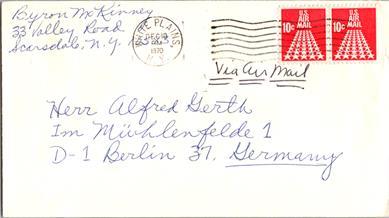 Byron McKinney
33 Valley Road
Scarsdale, N.Y.
WHITE PLAINS
DEC 10
PM
1970
N.Y.
U.S. AIR MAIL
10c
U.S. AIR MAIL
10c
Via Air Mail
Herr Alfred Gerth
Im Mühlenfelde 1
D-1 Berlin 37, Germany